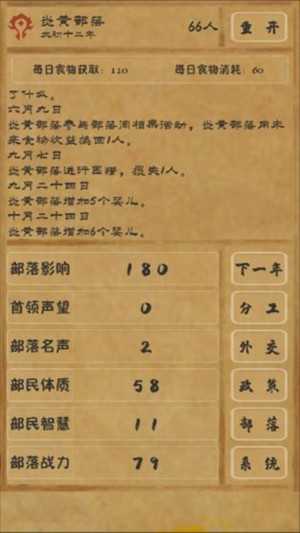 炎黄部落
太初十二年
66人
重开
每日食物获取：110
每日食物消耗：60
了什么。
六月九日
炎黄部落参与部落间相亲活动，炎黄部落用未来食物收益换回1人。
九月七日
炎黄部落进行医疗，损失1人。
九月二十四日
炎黄部落增加5个婴儿。
十月二十四日
炎黄部落增加6个婴儿。
部落影响 180 下一年
首领声望 0 分工
部落名声 2 外交
部民体质 58 政策
部民智慧 11 部落
部落战力 79 系统